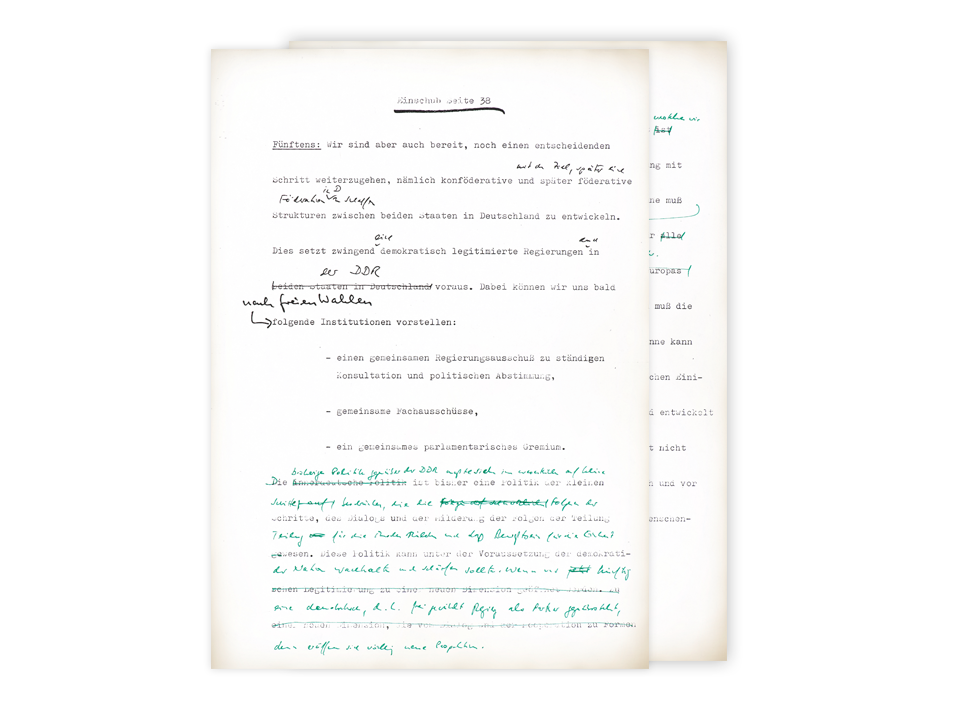 Einschub Seite 38
Fünftens: Wir sind aber auch bereit, noch einen entscheidenden
mit dem Ziel, später eine
Schritt weiterzugehen, nämlich konföderative und später föderative
Föderation in D zu schaffen
Strukturen zwischen beiden Staaten in Deutschland zu entwickeln.
eine
Dies setzt zwingend demokratisch legitimierte Regierungen in
der DDR
beiden Staaten in Deutschland voraus. Dabei können wir uns bald
nach freien Wahlen
folgende Institutionen vorstellen:
- einen gemeinsamen Regierungsausschuß zu ständigen
Konsultation und politischen Abstimmung,
- gemeinsame Fachausschüsse,
- ein gemeinsames parlamentarisches Gremium.
bisherige Politik gegenüber der DDR mußte sich im wesentlichen auf kleine
Die innerdeutsche Politik ist bisher eine Politik der kleinen
Schritte beschränken, die die Folgen der
Schritte, des Dialogs und der Milderung der Folgen der Teilung
Teilung für die Menschen mildern und das Bewußtsein für die Einheit
gewesen. Diese Politik kann unter der Voraussetzung der demokrati-
der Nation wachhalten und schärfen sollte. Wenn uns künftig
schen Legitimierung zu einer neuen Dimension geöffnet werden. Zu
eine demokratische, d.h. frei gewählte Regierung als Partner gegenübersteht,
einer neuen Dimension, die
dann eröffnen sich völlig neue Perspektiven.
ng mit
ne muß
r alle
uropas
muß die
nne kann
chen Eini-
d entwickelt
t nicht
h und vor
enschen-